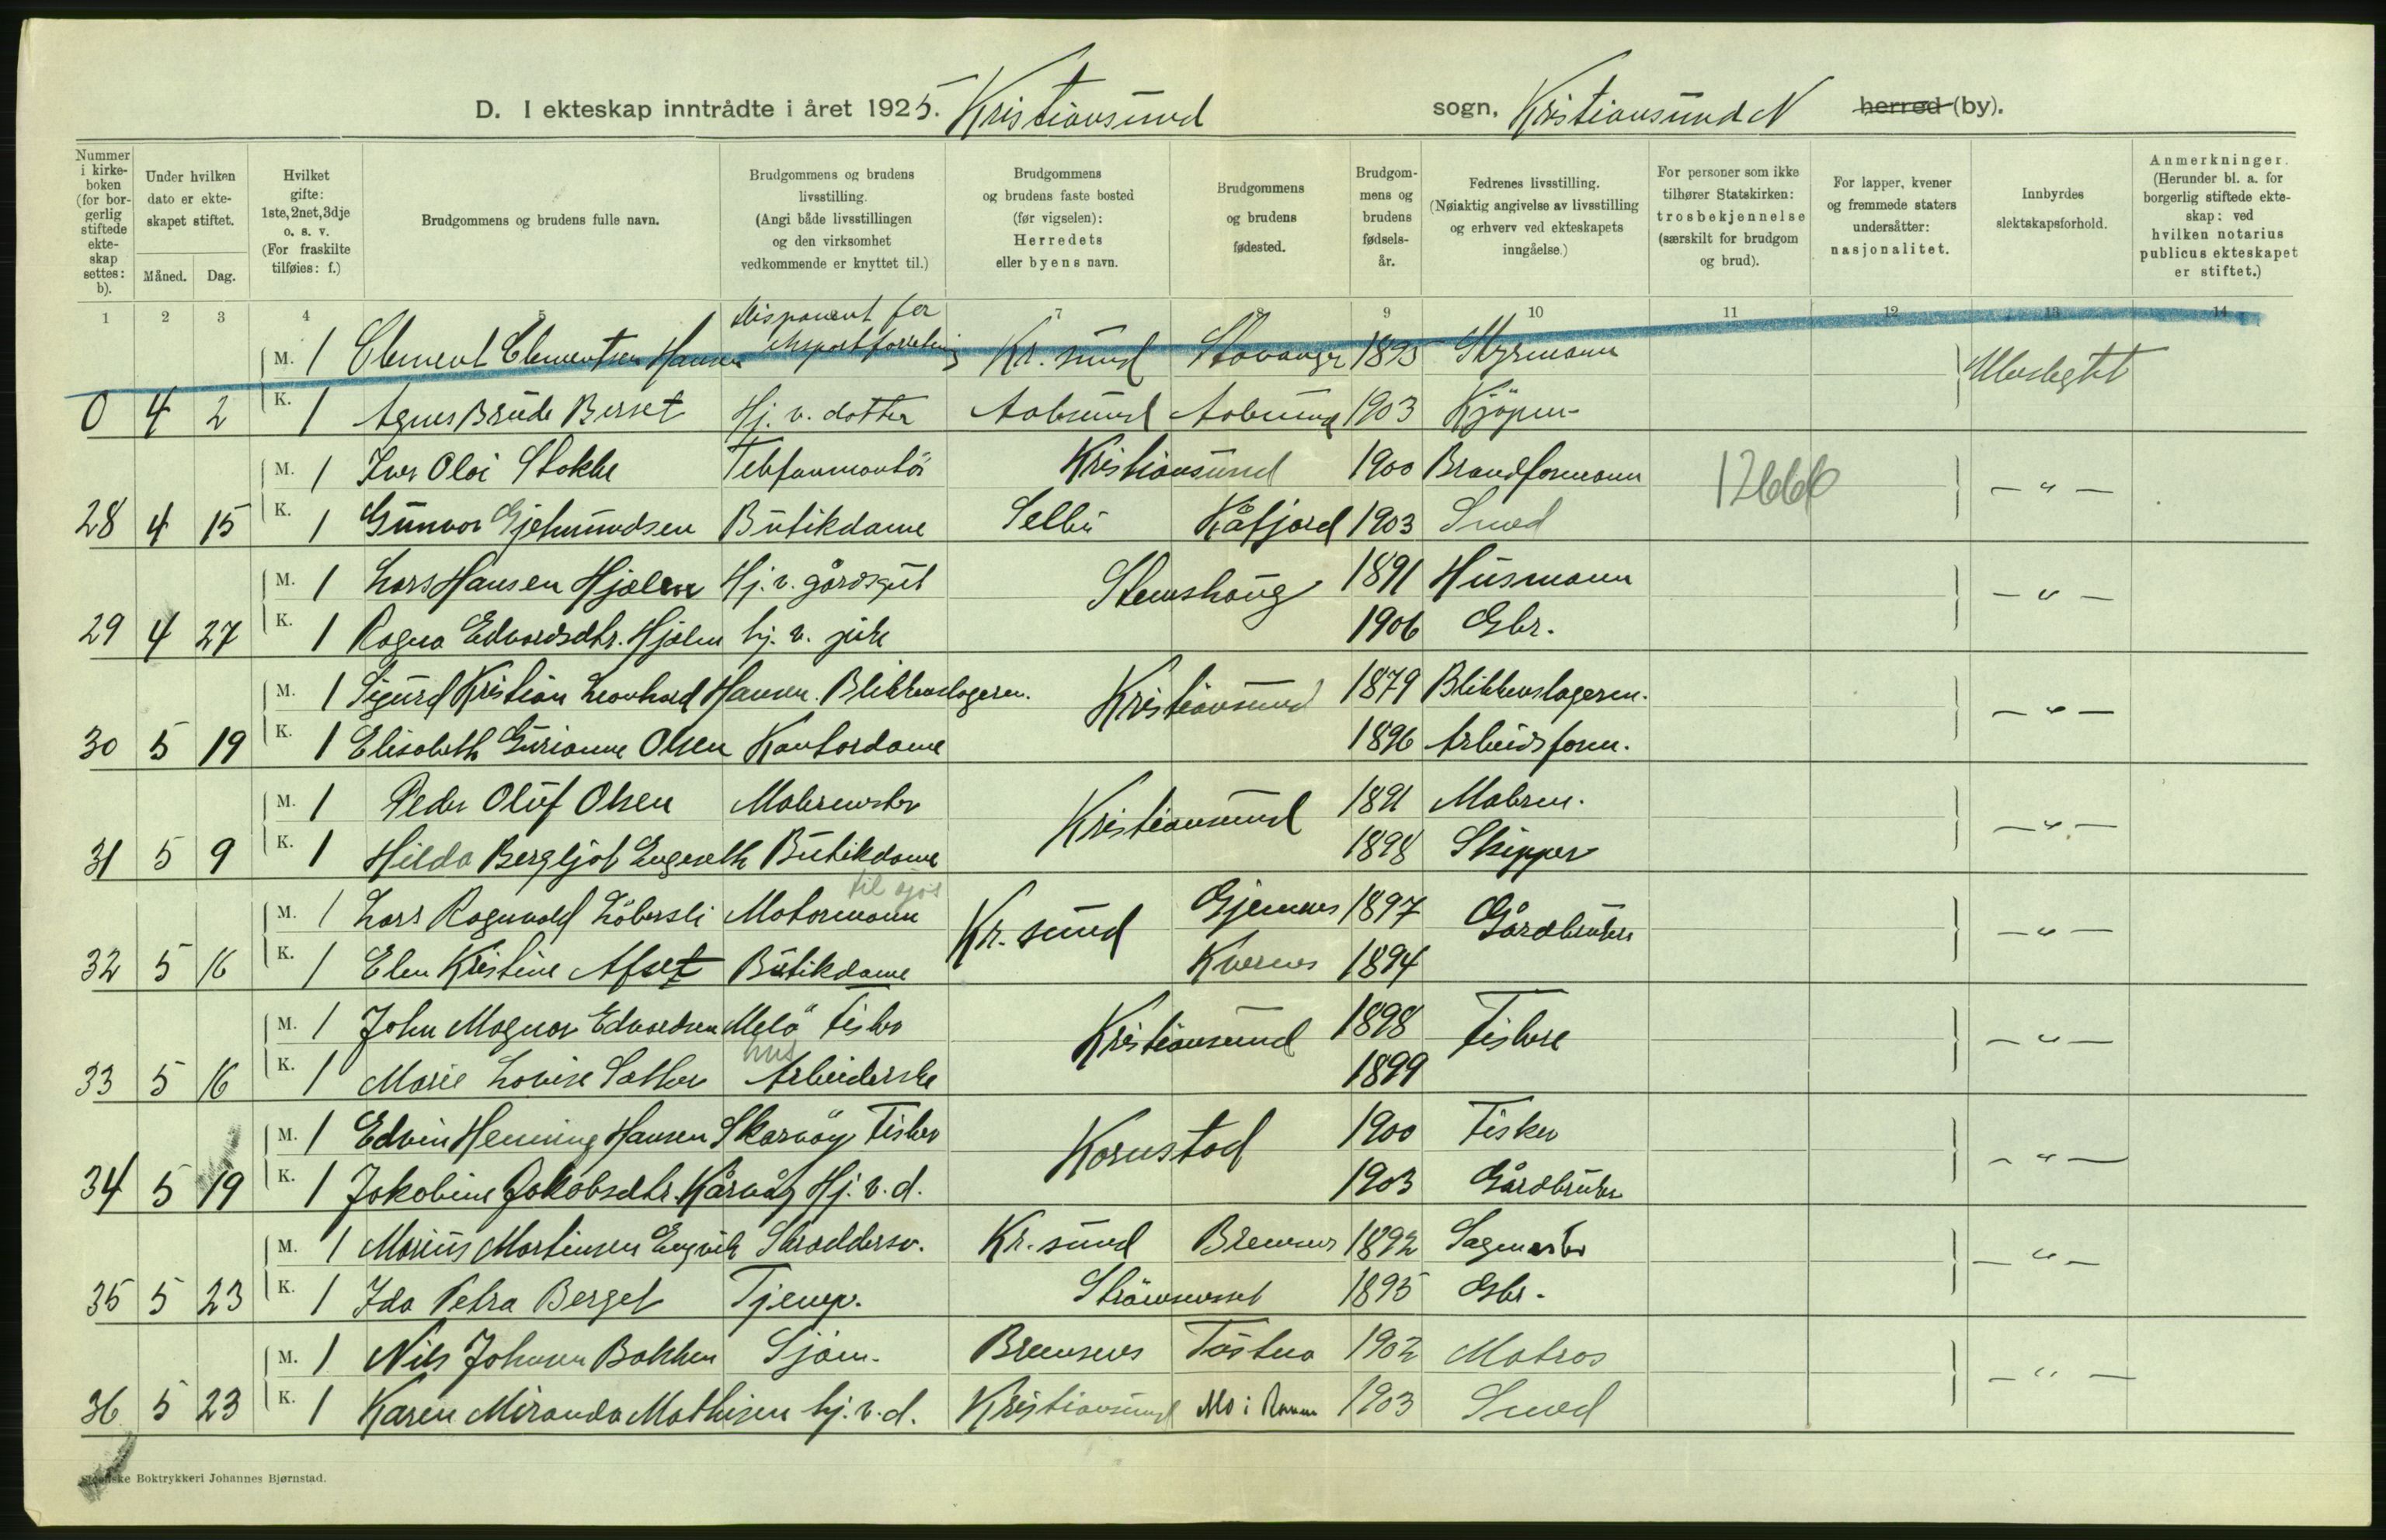 D. I ekteskap inntrådte i året 1925. Kristiansund sogn, Kristiansund N herred (by).
Nummer i kirkeboken (for borgerlig stiftede ekteskap settes: b).
Under hvilken dato er ekteskapet stiftet.
Måned. Dag.
Hvilket gifte: 1ste, 2net, 3dje o. s. v. (For fraskilte tilføies: f.)
Brudgommens og brudens fulle navn.
Brudgommens og brudens livsstilling. (Angi både livsstillingen og den virksomhet vedkommende er knyttet til.)
Brudgommens og brudens faste bosted (før vigselen): Herredets eller byens navn.
Brudgommens og brudens fødested.
Brudgommens og brudens fødselsår.
Fedrenes livsstilling. (Nøiaktig angivelse av livsstilling og erhverv ved ekteskapets inngåelse.)
For personer som ikke tilhører Statskirken: trosbekjennelse (særskilt for brudgom og brud).
For lapper, kvener og fremmede staters undersåtter: nasjonalitet.
Innbyrdes slektskapsforhold.
Anmerkninger. (Herunder bl. a. for borgerlig stiftede ekteskap: ved hvilken notarius publicus ekteskapet er stiftet.)
1 2 3 4 5 7 8 9 10 11 12 13 14
Disponent for
M. 1 Clement Clementsen Hansen eksportforretning Kr. sund Stavanger 1895 Styrmann Ubeslegtet
0 4 2 K. 1 Agnes Brude Berset Hj. v. datter Aalesund Aalesund 1903 Kjøpm.
M. 1 Iver Olai Stokke Telefonmontör Kristiansund 1900 Brandformann 12666 — " —
28 4 15 K. 1 Gunvor Gjetmundsen Butikdame Selbu Kåfjord 1903 Smed
M. 1 Lars Hansen Hjelm Hj. v. gårdsgut Stemshaug 1891 Husmann — " —
29 4 27 K. 1 Ragna Edvardsdtr. Hjelm hj. v. pike 1906 Gbr.
M. 1 Sigurd Kristian Leonhard Hansen. Blikkenslagerm. Kristiansund 1879 Blikkenslagerm. — " —
30 5 19 K. 1 Elisabeth Gurianne Olsen Kontordame 1896 Arbeidsform.
M. 1 Peder Oluf Olsen Malermester Kristiansund 1891 Malerm. — " —
31 5 9 K. 1 Hilda Bergljot Engeseth Butikdame 1898 Skipper
til sjøs
M. 1 Lars Ragnvald Löbersli Motormann Kr. sund Gjemnes 1897 Gårdbruker — " —
32 5 16 K. 1 Elen Kristine Afset Butikdame Kvernes 1894
M. 1 John Magnar Edvardsen Melö Fisker Kristiansund 1898 Fiskere — " —
hus
33 5 16 K. 1 Marie Lovise Sather Arbeiderske 1899
M. 1 Edvin Henning Hansen Skarvöy Fisker Kornstad 1900 Fisker — " —
34 5 19 K. 1 Jakobine Jakobsdtr. Kårvåg Hj. v. d. 1903 Gårdbruker
M. 1 Marius Martinsen Engvik Skreddersv. Kr. sund Bremsnes 1892 Sagmester — " —
35 5 23 K. 1 Ida Petra Berget Tjenep. Strömsneset 1895 Gbr.
M. 1 Nils Johnsen Bakken Sjöm. Bremsnes Tustna 1902 Matros — " —
36 5 23 K. 1 Karen Miranda Mathisen hj. v. d. Kristiansund Mo i Ranen 1903 Smed
Boktrykkeri Johannes Bjørnstad.